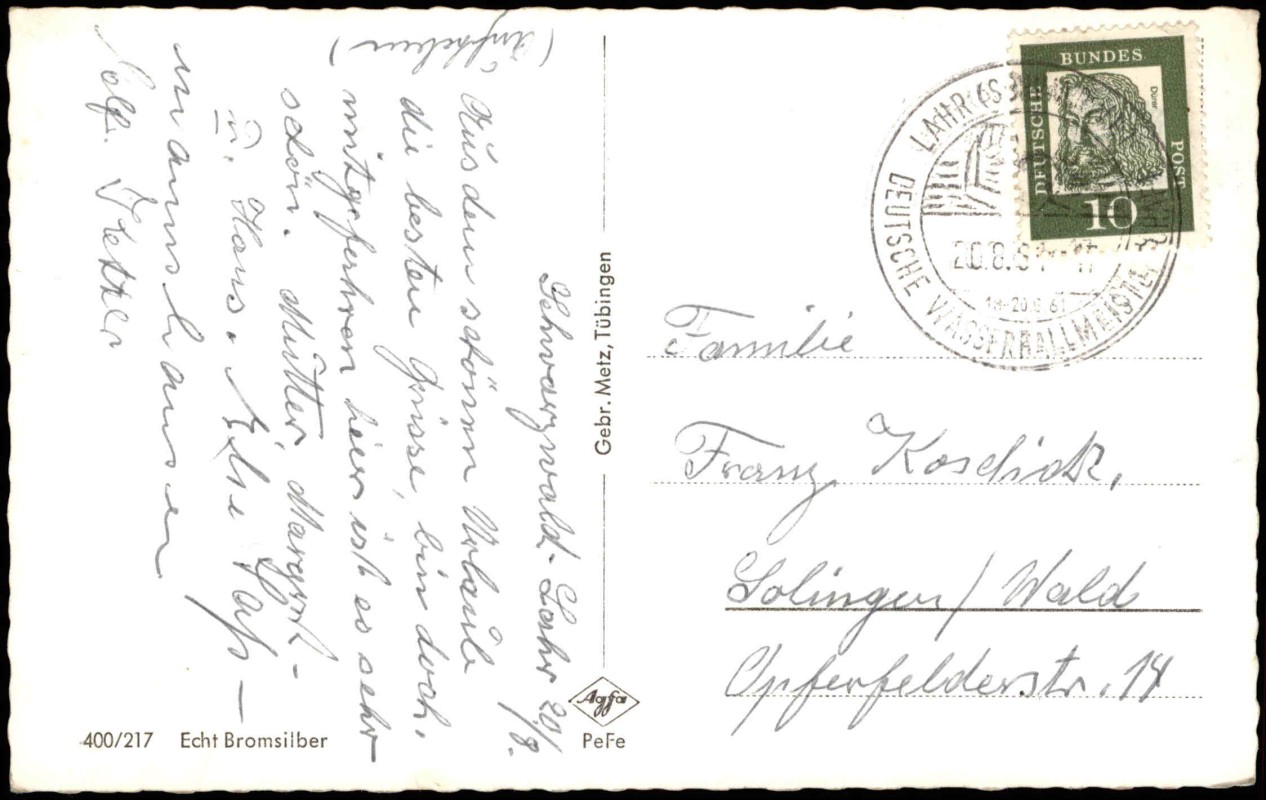 Schwarzwald-Lahr 20/8.
Aus dem schönen Urlaub
die besten Grüsse, bin doch
mitgefahren hier ist es sehr
schön. Mutter, Margrit -
u. Hans.
400/217 Echt Bromsilber
Gebr. Metz, Tübingen
Agfa
PeFe
DEUTSCHE BUNDES POST
Dürer
10
LAHR (S
DEUTSCHE WASSERBALLMEISTE
20.8.61
18-20.8.61
Familie
Franz Koschick,
Solingen/Wald
Opferfelderstr. 14